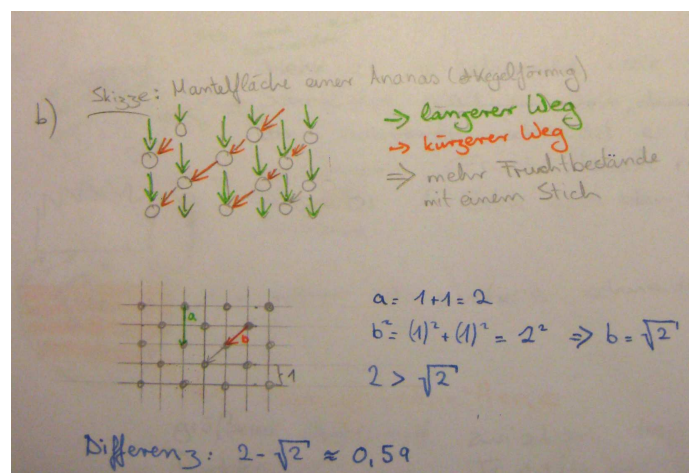 b) Skizze: Mantelfläche einer Ananas (Kegelförmig)
→ längerer Weg
→ kürzerer Weg
⇒ mehr Fruchtbestände
mit einem Stich
a
b
1
a = 1+1 = 2
b² = (1)² + (1)² = 2² ⇒ b = √2
2 > √2
Differenz: 2 - √2 ≈ 0,59